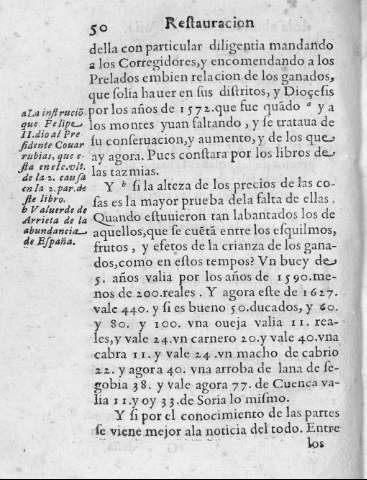 50 Restauracion
della con particular diligentia mandando
a los Corregidores, y encomendando a los
Prelados embien relacion de los ganados,
que solia hauer en sus distritos, y Dioçesis
por los años de 1572. que fue quãdo ª y a
los montes yuan faltando, y se trataua de
su conseruacion, y aumento, y de los que
ay agora. Pues constara por los libros de
las tazmias.
Y ᵇ si la alteza de los precios de las co-
sas es la mayor prueba dela falta de ellas.
Quando estuuieron tan labantados los de
aquellos, que se cuẽtã entre los esquilmos,
frutos, y efetos de la crianza de los gana-
dos, como en estos tempos? Vn buey de
5. años valia por los años de 1590. me-
nos de 200. reales. Y agora este de 1627.
vale 440. y si es bueno 50. ducados, y 60.
y 80. y 100. vna oueja valia 11. rea-
les, y vale 24. vn carnero 20. y vale 40. vna
cabra 11. y vale 24. vn macho de cabrio
22. y agora 40. vna arroba de lana de se-
gobia 38. y vale agora 77. de Cuenca va-
lia 11. y oy 33. de Soria lo mismo.
Y si por el conocimiento de las partes
se viene mejor ala noticia del todo. Entre
los
a La instrucciõ
que Felipe
II. dio al Pre
sidente Couar
rubias, que e-
sta en el c. vlt.
de la 2. causa
en la 2. par. de
ste libro.
b Valuerde de
Arrieta de la
abundancia
de España.